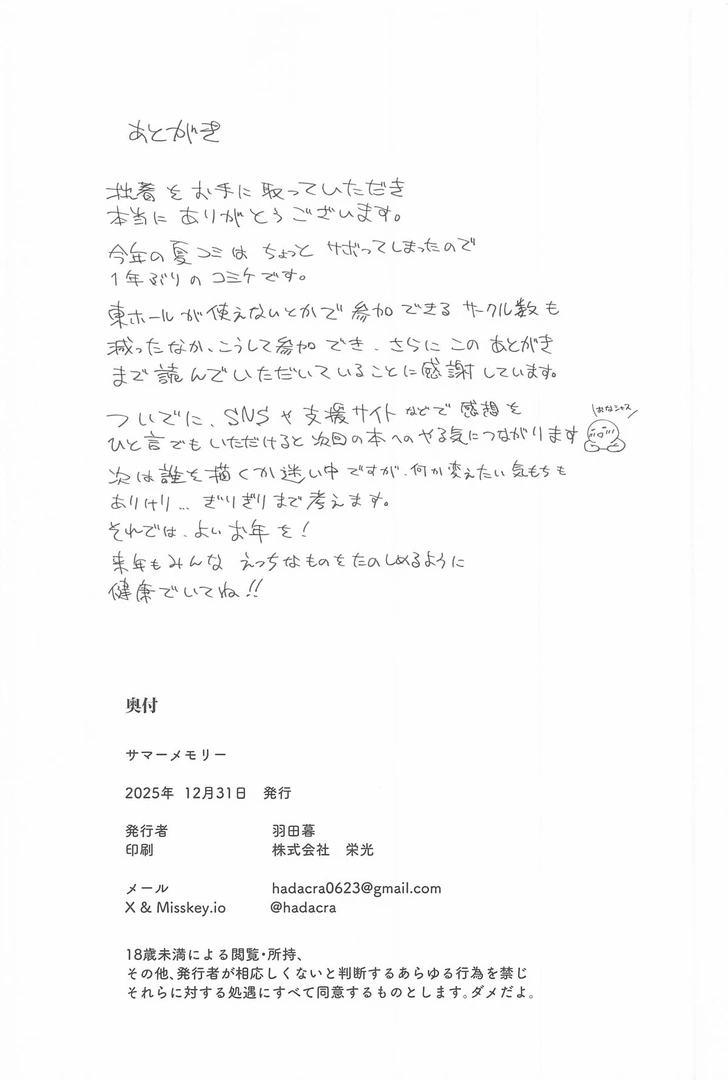 あとがき
拙著をお手に取っていただき
本当にありがとうございます。
今年の夏コミはちょっとサボってしまったので
1年ぶりのコミケです。
東ホールが使えないとかで参加できるサークル数も
減ったなか、こうして参加でき、さらにこのあとがき
まで読んでいただいていることに感謝しています。
ついでに、SNSや支援サイトなどで感想を
ひと言でもいただけると次回の本へのやる気につながります
おなシャス
次は誰を描くか迷い中ですが、何か変えたい気もちも
ありけり… ぎりぎりまで考えます。
それでは、よいお年を!
来年もみんなえっちなものをたのしめるように
健康でいてね!!
奥付
サマーメモリー
2025年 12月31日 発行
発行者 羽田暮
印刷 株式会社 栄光
メール hadacra0623@gmail.com
X & Misskey.io @hadacra
18歳未満による閲覧・所持、
その他、発行者が相応しくないと判断するあらゆる行為を禁じ
それらに対する処遇にすべて同意するものとします。ダメだよ。